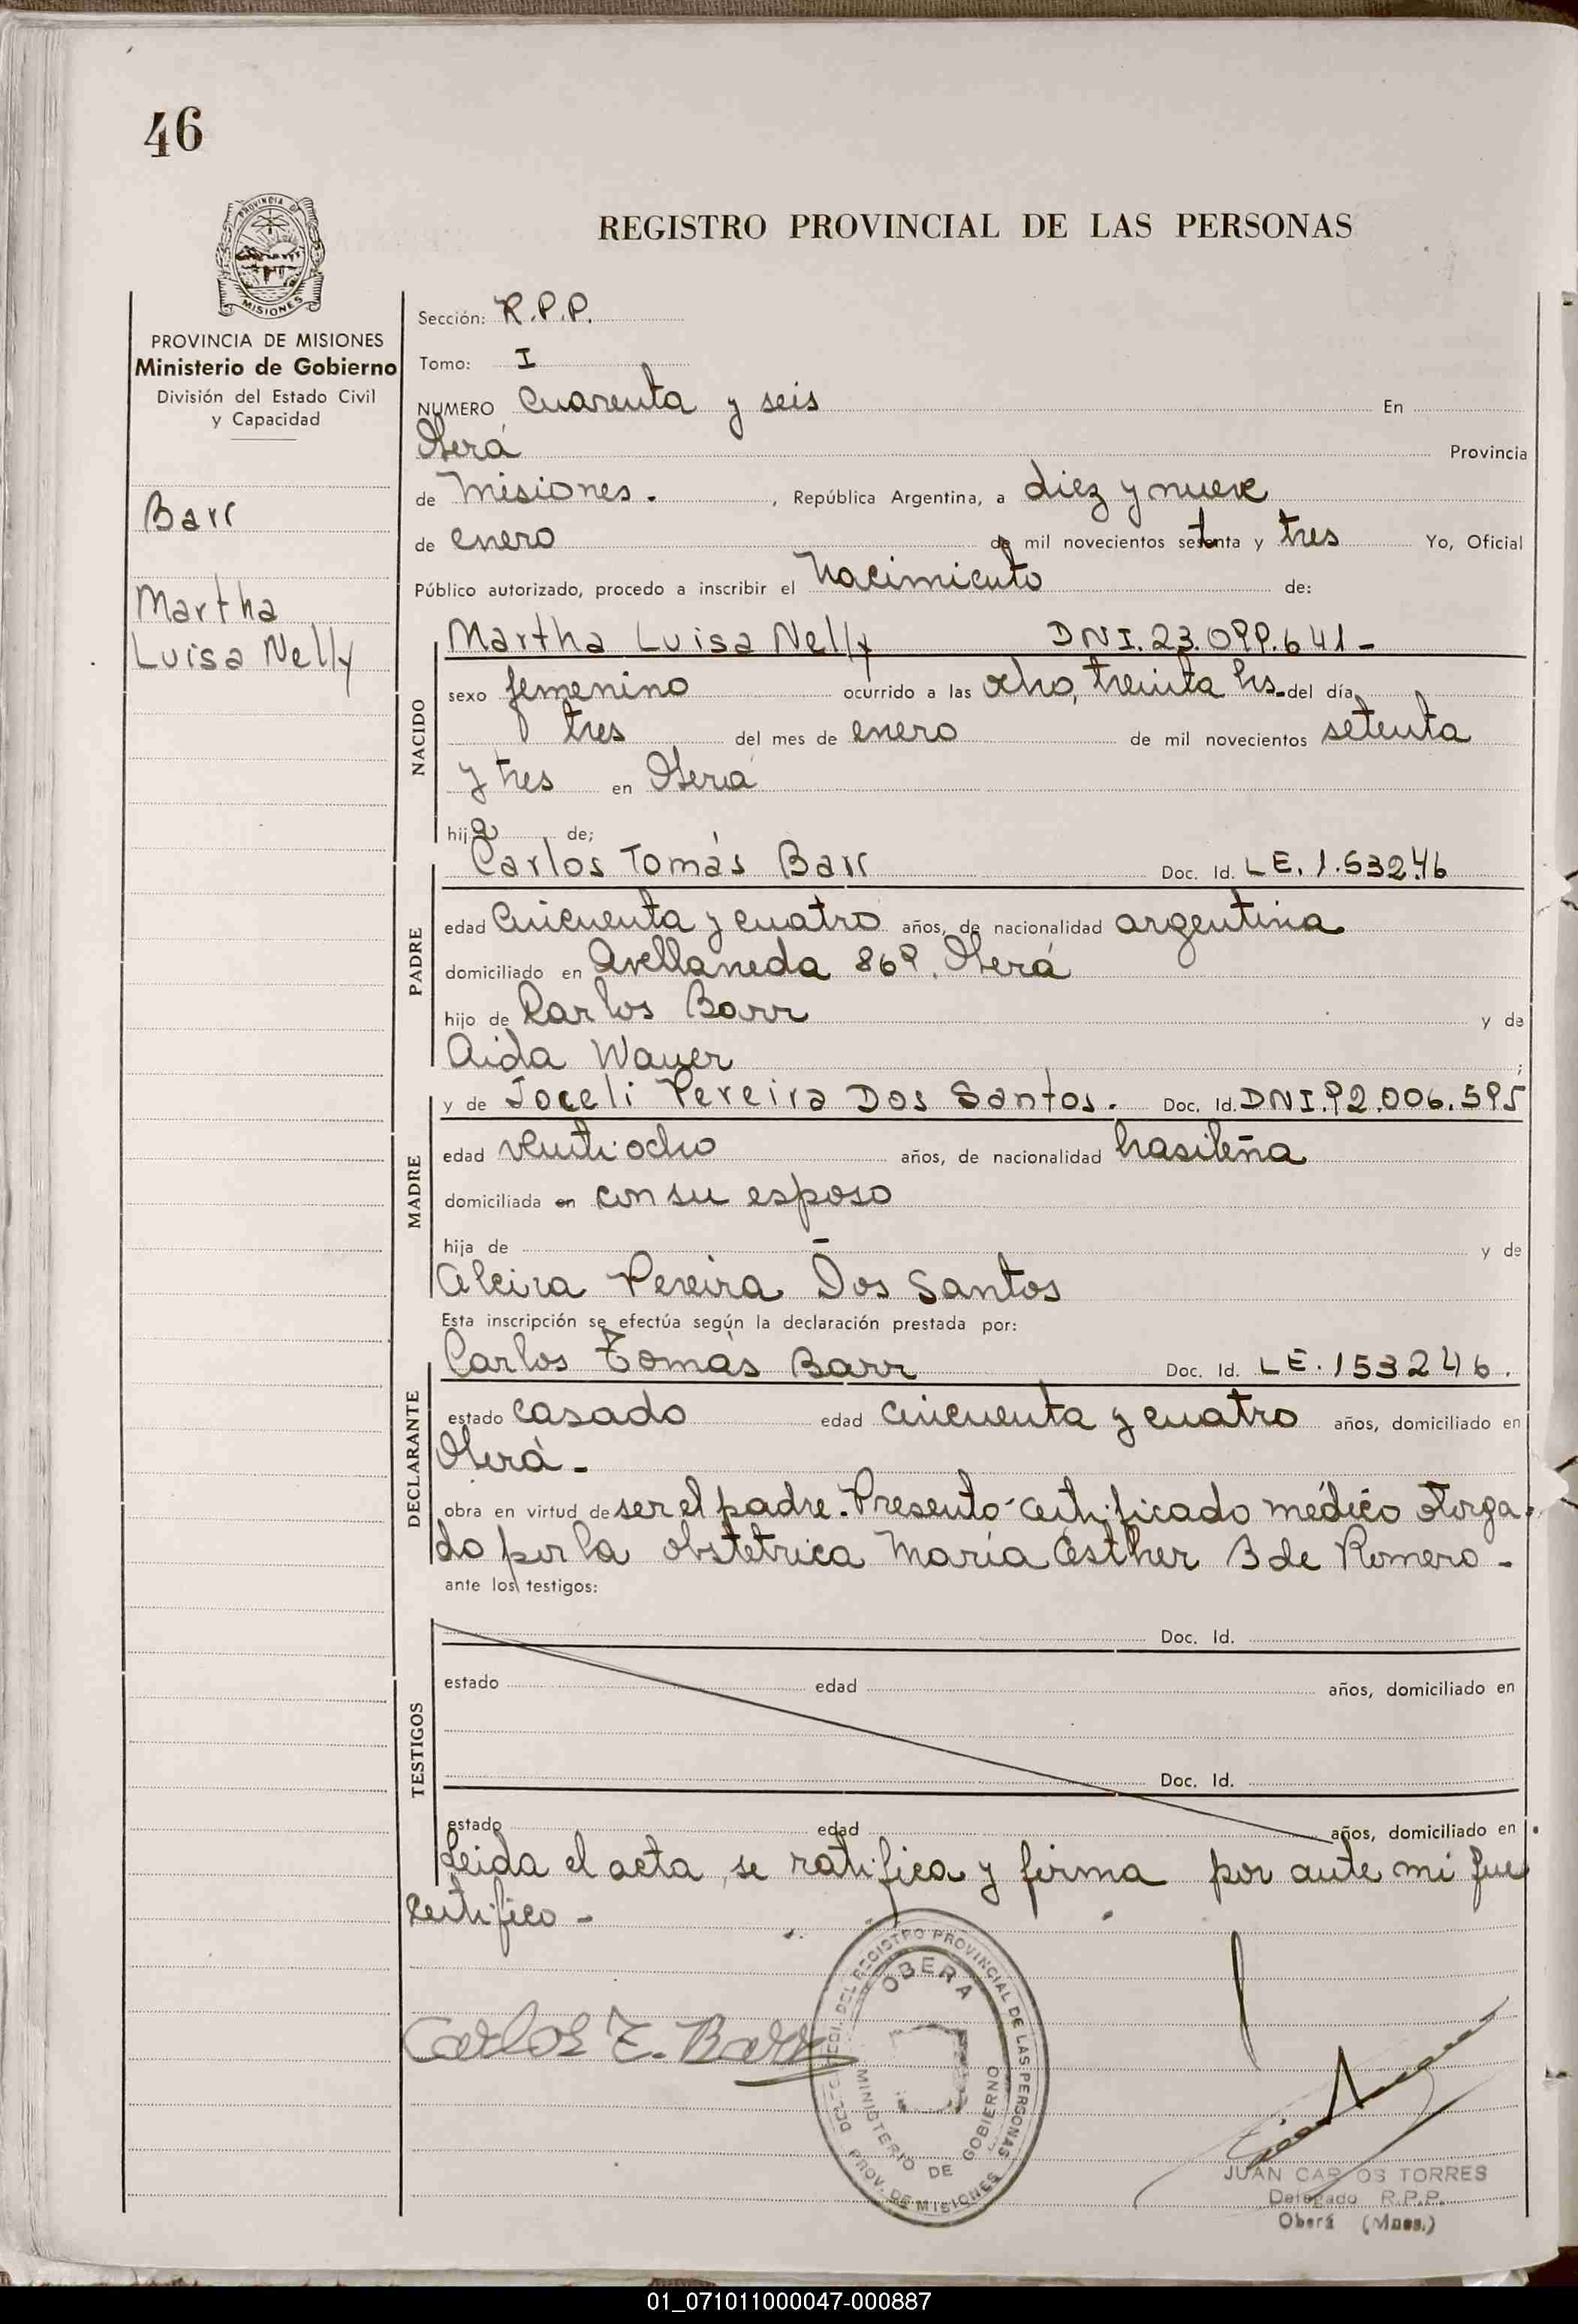 46
PROVINCIA DE
MISIONES
REGISTRO PROVINCIAL DE LAS PERSONAS
PROVINCIA DE MISIONES
Ministerio de Gobierno
División del Estado Civil
y Capacidad
Barr
Martha
Luisa Nelly
Sección: R.P.P.
Tomo: I
NUMERO cuarenta y seis En
Oberá Provincia
de Misiones. , República Argentina, a diez y nueve
de enero de mil novecientos setenta y tres Yo, Oficial
Público autorizado, procedo a inscribir el Nacimiento de:
NACIDO
Martha Luisa Nelly DNI. 23.099.641-
sexo femenino ocurrido a las ocho, treinta hs. del día
tres del mes de enero de mil novecientos setenta
y tres en Oberá
hija de;
PADRE
Carlos Tomás Barr Doc. Id. LE. 1.532.46
edad cincuenta y cuatro años, de nacionalidad argentina
domiciliado en Avellaneda 869. Oberá
hijo de Carlos Barr y de
Aida Wauer ;
MADRE
y de Joceli Pereira Dos Santos. Doc. Id. DNI. 92.006.595
edad veinti ocho años, de nacionalidad brasileña
domiciliada en con su esposo
hija de - y de
Alcira Pereira Dos Santos
Esta inscripción se efectúa según la declaración prestada por:
DECLARANTE
Carlos Tomás Barr Doc. Id. LE. 153246.
estado casado edad cincuenta y cuatro años, domiciliado en
Oberá-
obra en virtud de ser el padre. Presentó certificado médico otorga-
do por la obstétrica María Esther B de Romero-
ante los testigos:
TESTIGOS
Doc. Id.
estado edad años, domiciliado en
Doc. Id.
estado edad años, domiciliado en
Leida el acta, se ratifica y firma por ante mi que
certifico-
Carlos T. Barr
DEL REGISTRO PROVINCIAL DE LAS PERSONAS
OBERA
MINISTERIO DE GOBIERNO
PROV. DE MISIONES
JUAN CARLOS TORRES
Delegado R.P.P.
Oberá (Mnes.)
01_071011000047-000887